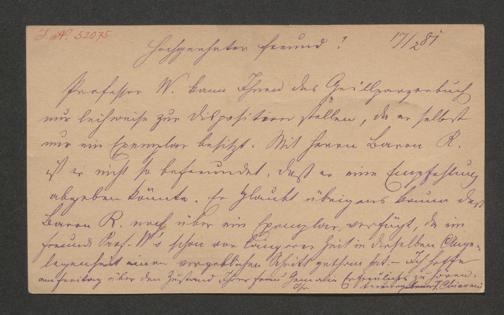 I. N. 52075
Hochgeehrter Freund! 17/2 81
Professor W. kann Ihnen das Grillparzerbuch
nur leihweise zur Disposition stellen, da er selbst
nur ein Exemplar besitzt. Mit Herrn Baron R.
ist er nicht so befreundet, daß er eine Empfehlung
abgeben könnte. Er glaubt übrigens kaum daß
Baron R. noch über ein Exemplar verfügt, da ein
Freund Prof. W's schon vor längerer Zeit in derselben Ange-
legenheit einen vergeblichen Schritt gethan hat. – Ich hoffe
am Freitag über den Zustand Ihrer Frau Gemalin Erfreuliches zu hören.